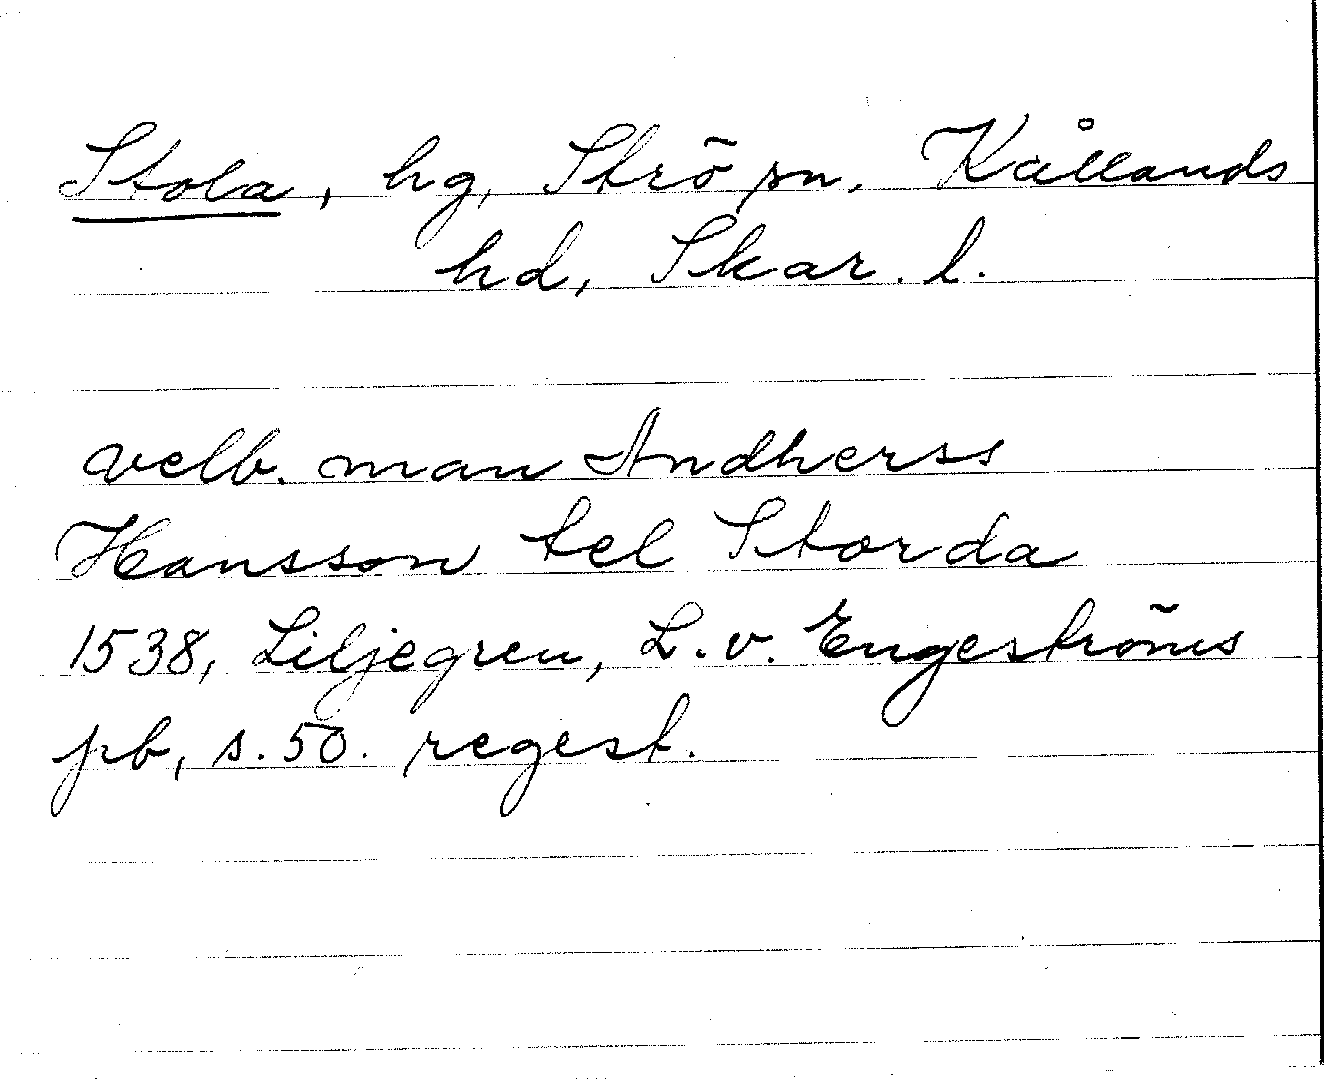 Stola, hg, Strö sn, Kållands
hd, Skar. l.
velb. man Andherss
Hansson tel Storda
1538, Liljegren, L. v. Engeströms
pb, s. 50. regest.